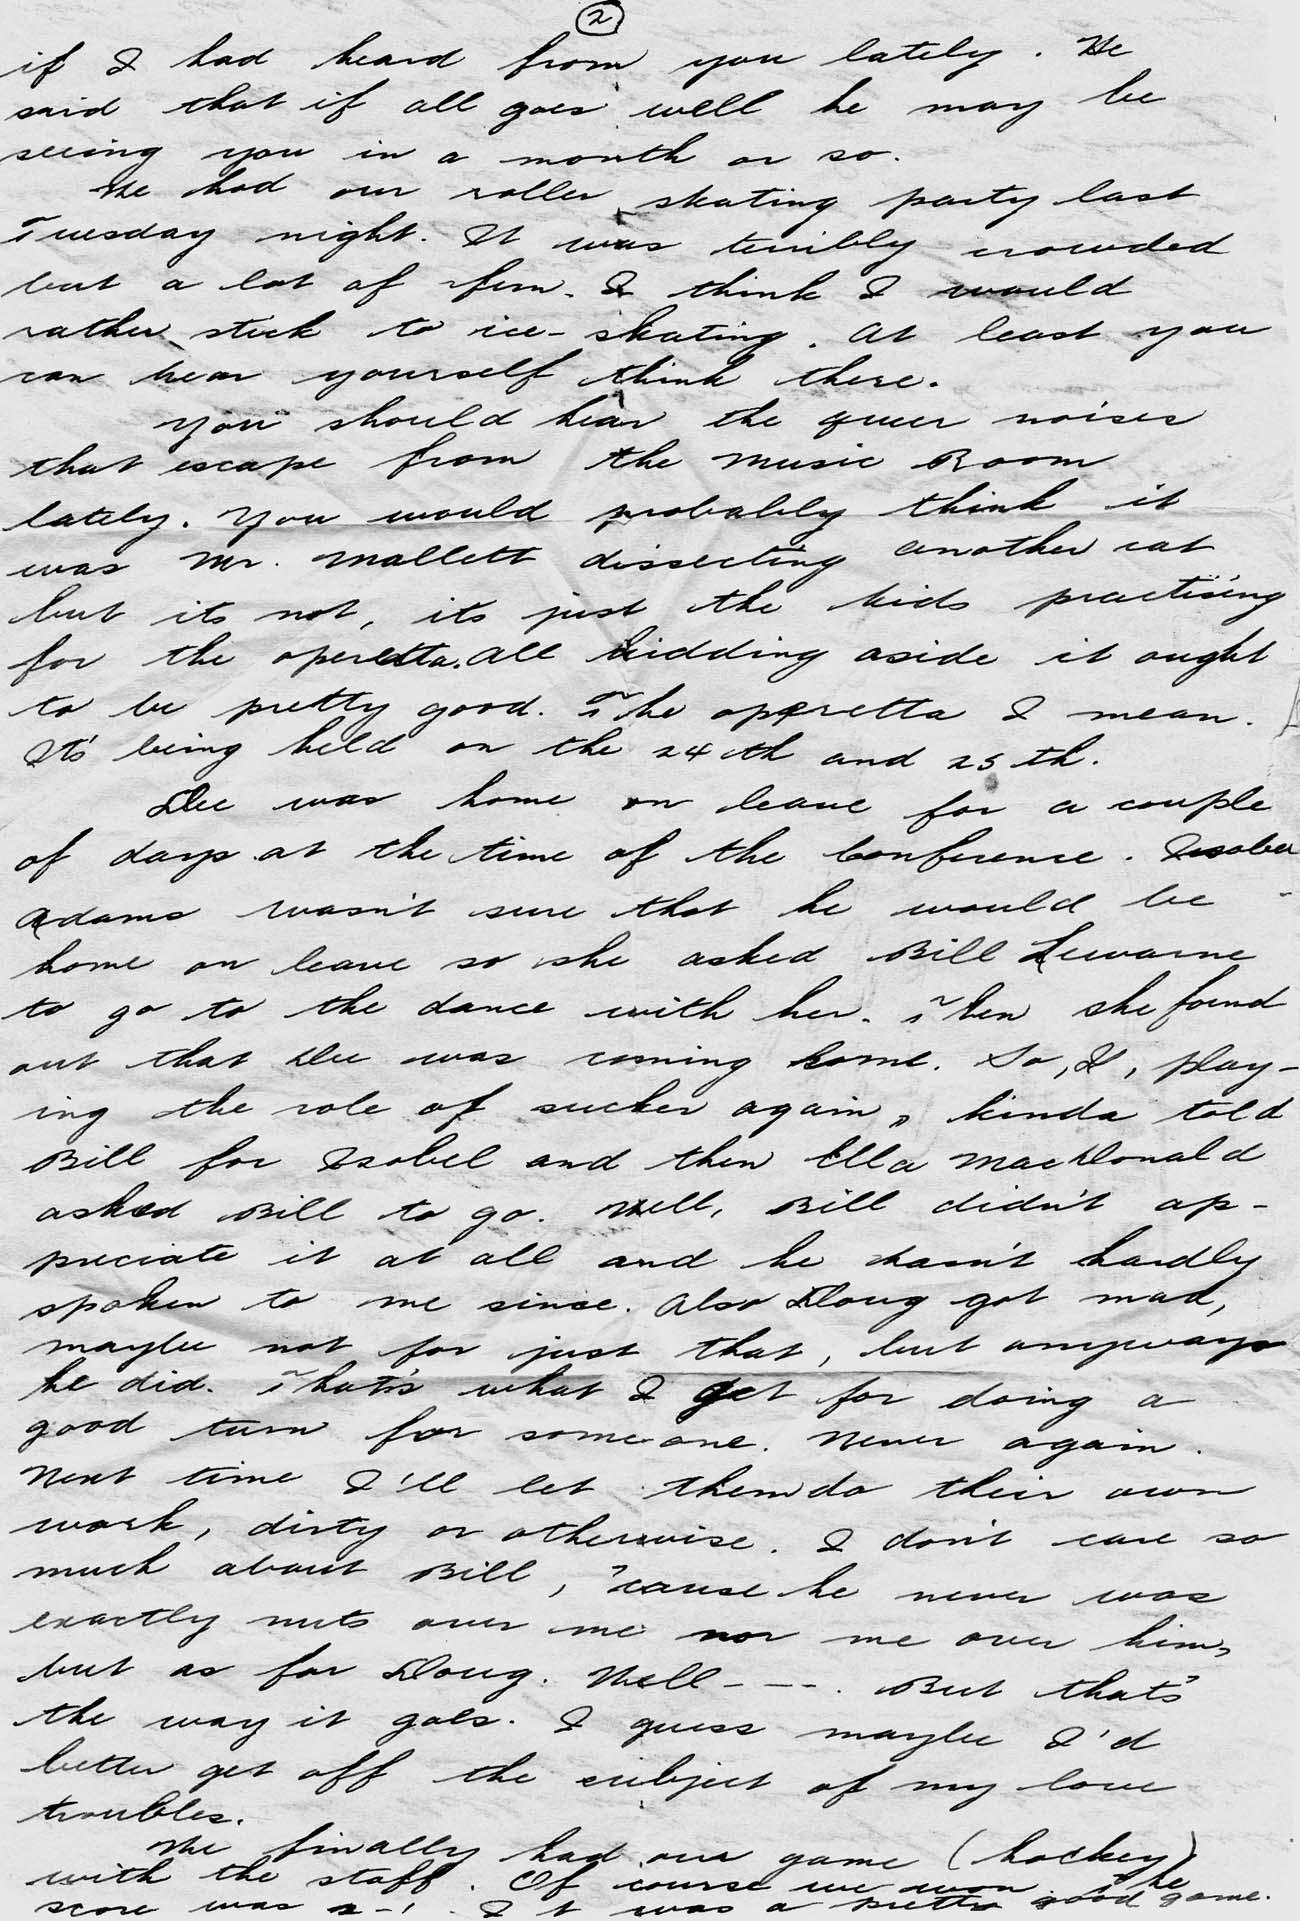 2
if I had heard from you lately. He
said that if all goes well he may be
seeing you in a month or so.
We had our roller skating party last
Tuesday night. It was terribly crowded
but a lot of fun. I think I would
rather stick to ice-skating. At least you
can hear yourself think there.
You should hear the queer noises
that escape from the Music Room
lately. You would probably think it
was Mr. Mallett dissecting another cat
but its not, its just the kids practising
for the operetta. All kidding aside it ought
to be pretty good. The operetta I mean.
Its' being held on the 24th and 25th.
Dee was home on leave for a couple
of days at the time of the Conference. Isobel
Adams wasn't sure that he would be
home on leave so she asked Bill Lewarne
to go to the dance with her. Then she found
out that Dee was coming home. So, I, play-
ing the role of sucker again, kinda told
Bill for Isobel and then Ella MacDonald
asked Bill to go. Well, Bill didn't ap-
preciate it at all and he hasn't hardly
spoken to me since. Also Doug got mad,
maybe not for just that, but anyways
he did. That's what I get for doing a
good turn for someone. Never again.
Next time I'll let them do their own
work, dirty or otherwise. I don't care so
much about Bill, 'cause he never was
exactly nuts over me nor me over him,
but as for Doug. Well - - -. But that's
the way it goes. I guess maybe I'd
better get off the subject of my love
troubles.
We finally had our game (hockey)
with the staff. Of course we won. The
score was 2-1. It was a pretty good game.